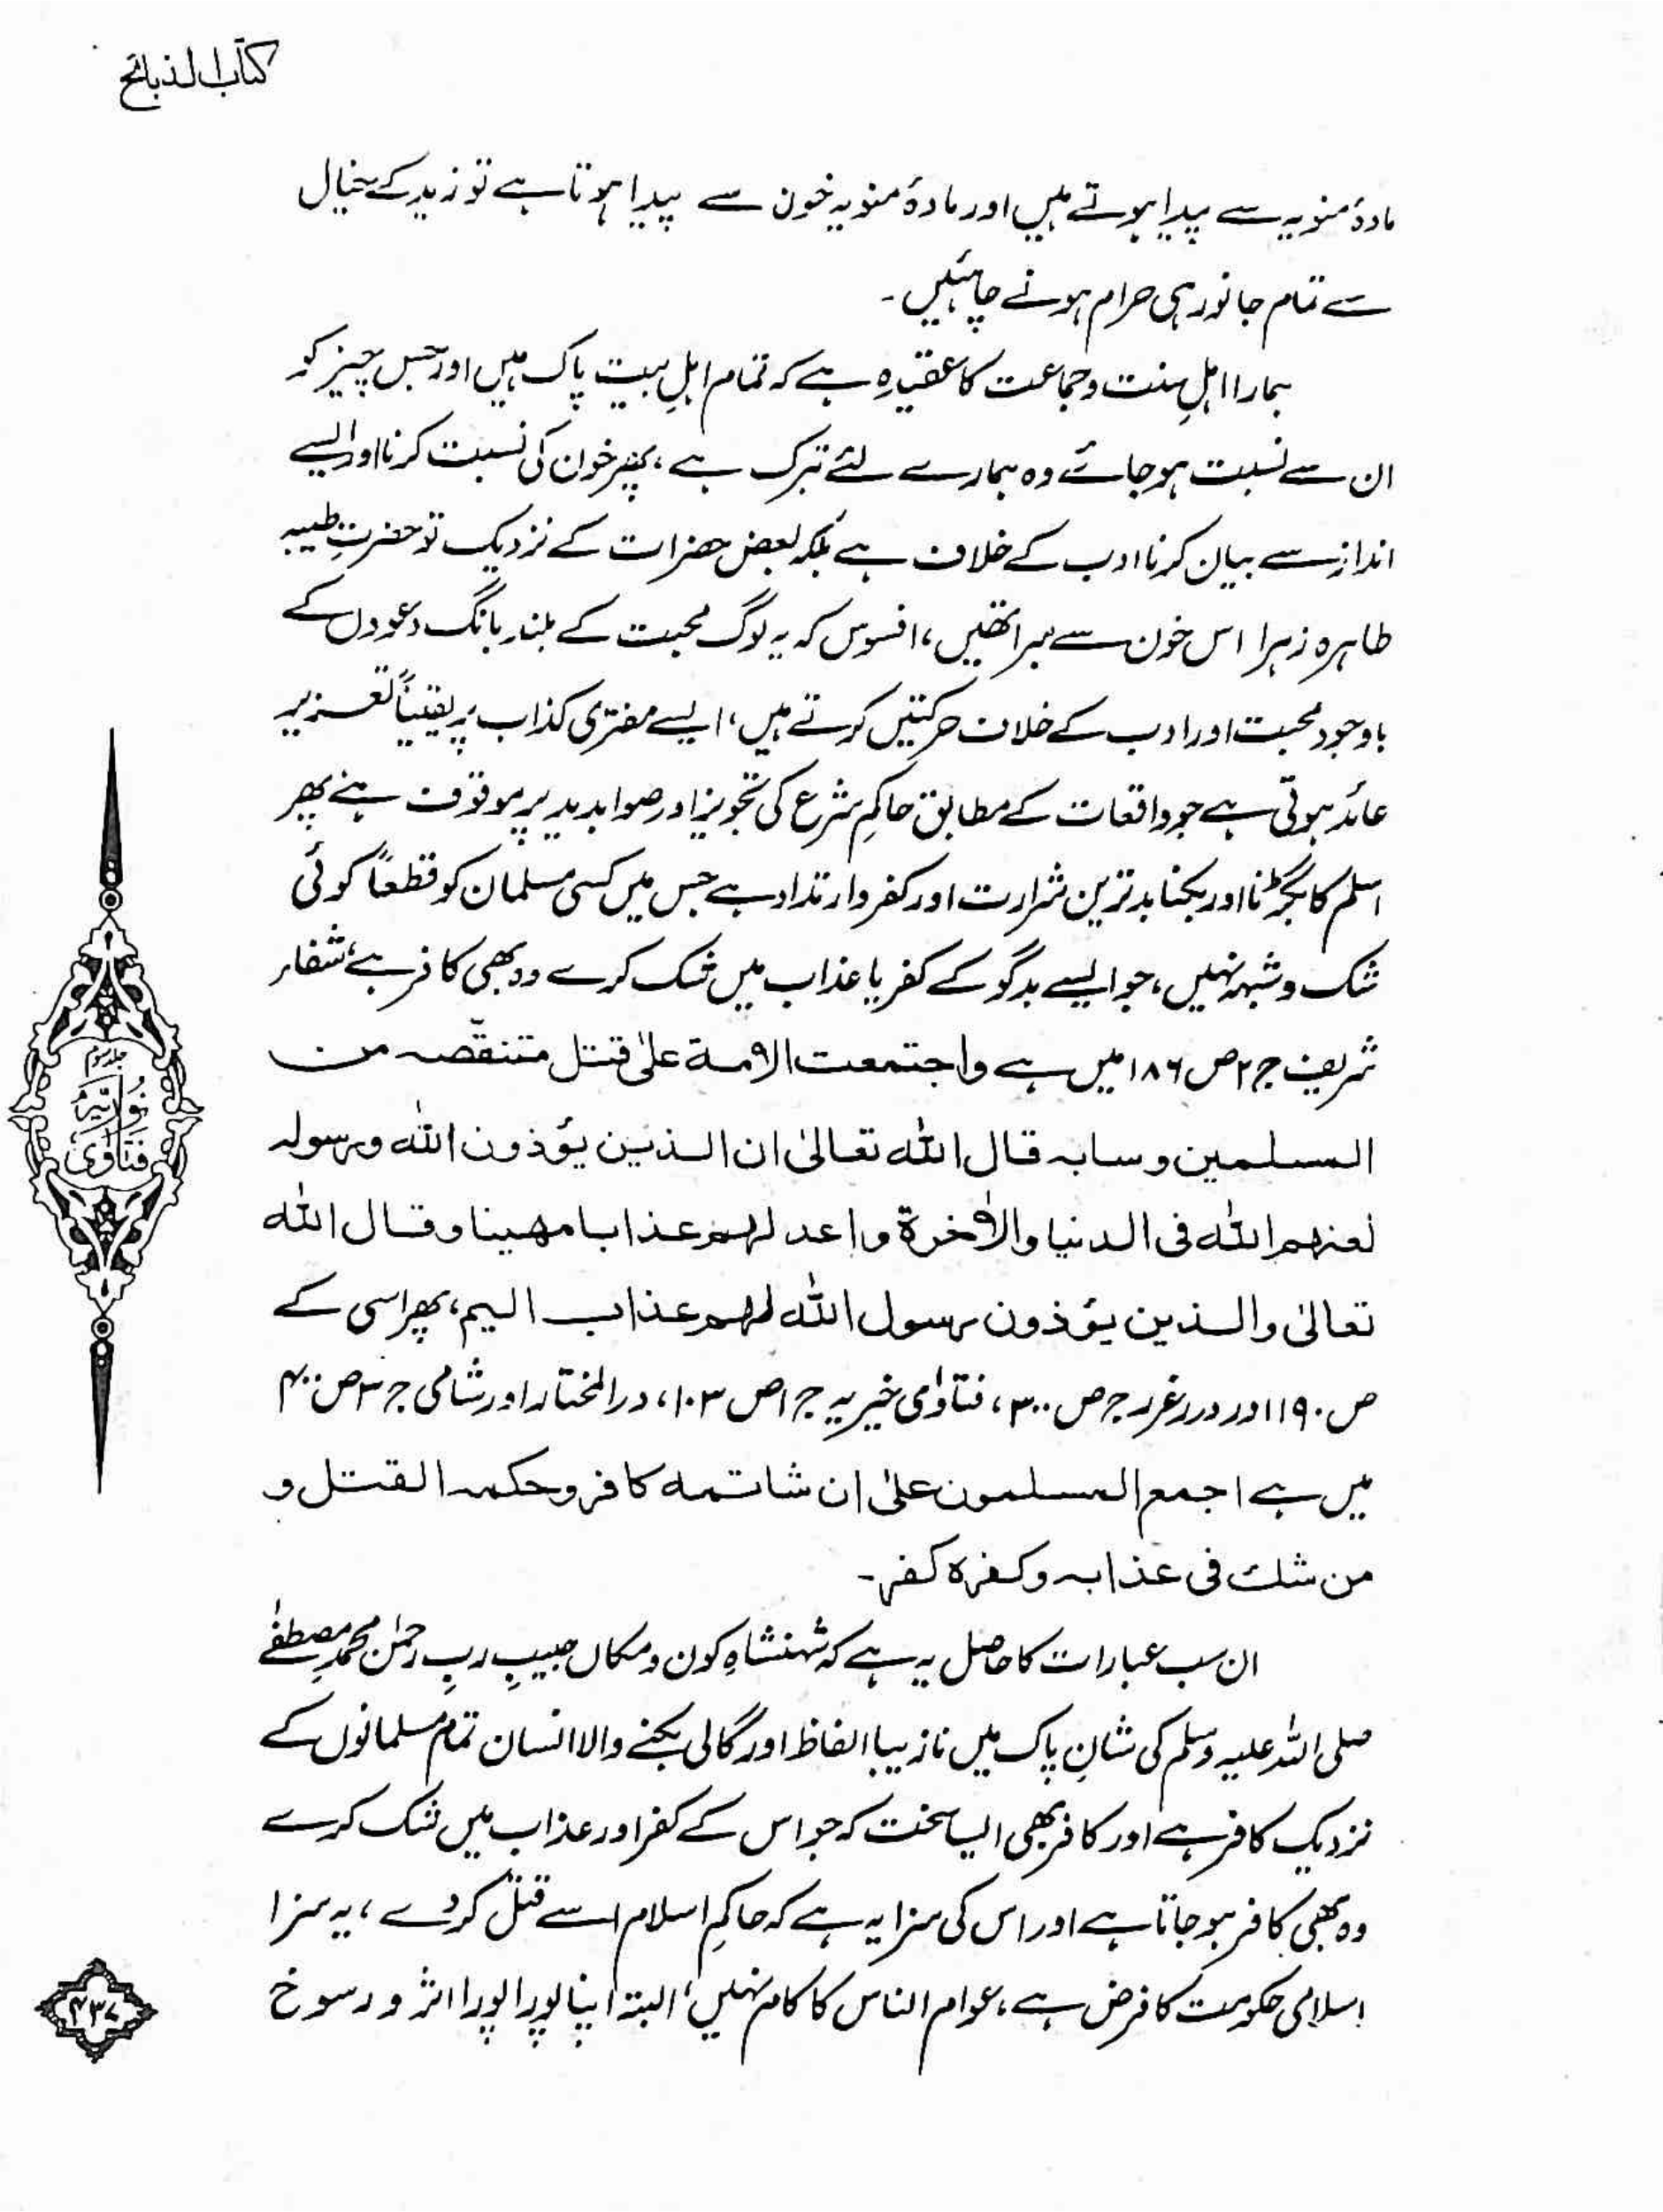 کتاب الذبائح
مادۂ منویہ سے پیدا ہوتے ہیں اور مادۂ منویہ خون سے پیدا ہوتا ہے تو زید کے خیال
سے تمام جانور ہی حرام ہونے چاہئیں۔
ہمارا اہلِ سنت و جماعت کا عقیدہ ہے کہ تمام اہلِ بیت پاک ہیں اور جس چیز کو
ان سے نسبت ہو جائے وہ ہمارے لئے تبرک ہے، پھر خون کی نسبت کرنا اور ایسے
انداز سے بیان کرنا ادب کے خلاف ہے بلکہ بعض حضرات کے نزدیک تو حضرتِ طیبہ
طاہرہ زہرا اس خون سے مبرا تھیں، افسوس کہ یہ لوگ محبت کے بلند بانگ دعووں کے
باوجود محبت اور ادب کے خلاف حرکتیں کرتے ہیں، ایسے مفتری کذاب پر یقیناً تعزیر
عائد ہوتی ہے جو واقعات کے مطابق حاکمِ شرع کی تجویز اور صوابدید پر موقوف ہے، پھر
اسلم کا بگڑنا اور بکنا بدترین شرارت اور کفر و ارتداد ہے جس میں کسی مسلمان کو قطعاً کوئی
شک و شبہہ نہیں، جو ایسے بدگو کے کفر یا عذاب میں شک کرے وہ بھی کافر ہے، شفاء
شریف ج ۲ ص ۱۸۶ میں ہے واجتمعت الامة علیٰ قتل متنقّصہ من
المسلمین و سابہ قال اللہ تعالیٰ ان الذین یؤذون اللہ ورسولہ
لعنہم اللہ فی الدنیا والاٰخرة واعد لہم عذابا مھینا وقال اللہ
تعالیٰ والذین یؤذون رسول اللہ لہم عذاب الیم، پھر اسی کے
ص ۱۹۰ اور درر غرر ج ص ۳۰۰، فتاوٰی خیریہ ج ۱ ص ۱۰۳، در المختار اور شامی ج ۳ ص ۴۰۰
میں ہے اجمع المسلمون علیٰ ان شاتمہ کافر وحکمہ القتل و
من شك فی عذابہ وکفرہ کفر۔
ان سب عبارات کا حاصل یہ ہے کہ شہنشاہِ کون و مکاں حبیبِ ربِ رحمٰن محمدِ مصطفٰے
صلی اللہ علیہ وسلم کی شانِ پاک میں نازیبا الفاظ اور گالی بکنے والا انسان تمام مسلمانوں کے
نزدیک کافر ہے اور کافر بھی ایسا سخت کہ جو اس کے کفر اور عذاب میں شک کرے
وہ بھی کافر ہو جاتا ہے اور اس کی سزا یہ ہے کہ حاکمِ اسلام اسے قتل کر دے، یہ سزا
اسلامی حکومت کا فرض ہے، عوام الناس کا کام نہیں، البتہ اپنا پورا پورا اثر و رسوخ
جلد سوم
فتاویٰ نوریہ
۴۳۷